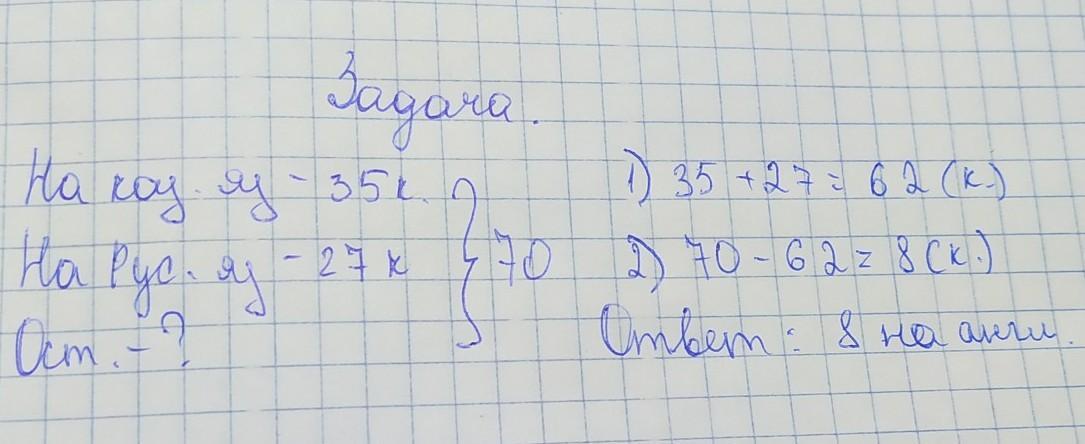 Задача.
На каз. яз - 35к.
На Рус. яз - 27 к
Ост. - ?
70
1) 35 + 27 = 62 (к.)
2) 70 - 62 = 8 (к.)
Ответ: 8 на англ.